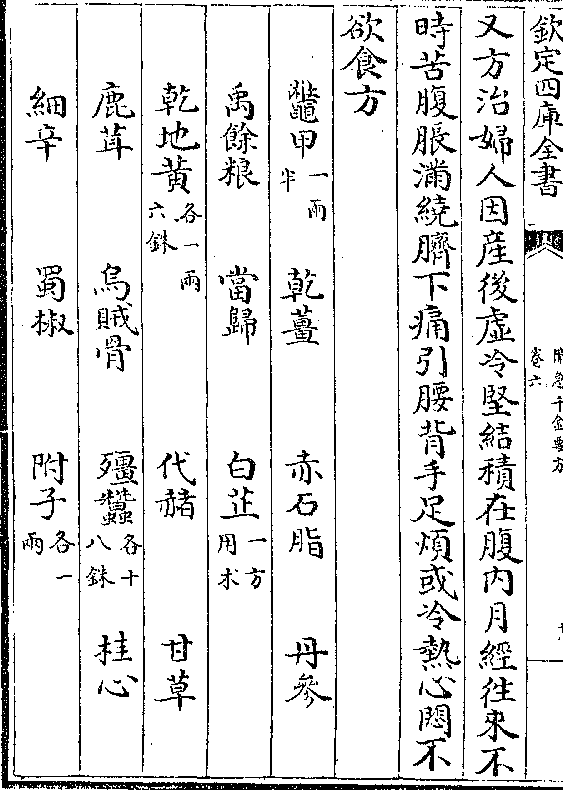 欽定四庫全書
卷六
又方治婦人因産後虚冷堅結積在腹内月經往來不
時苦腹脹滿繞臍下痛引腰背手足煩或冷熱心悶不
欲食方
鼈甲一兩半 乾薑 赤石脂 丹參
禹餘粮 當歸 白芷一方用术
乾地黄各一兩六銖 代赭 甘草
鹿茸 烏賊骨 殭蠶各十八銖 桂心
細辛 蜀椒 附子各一兩